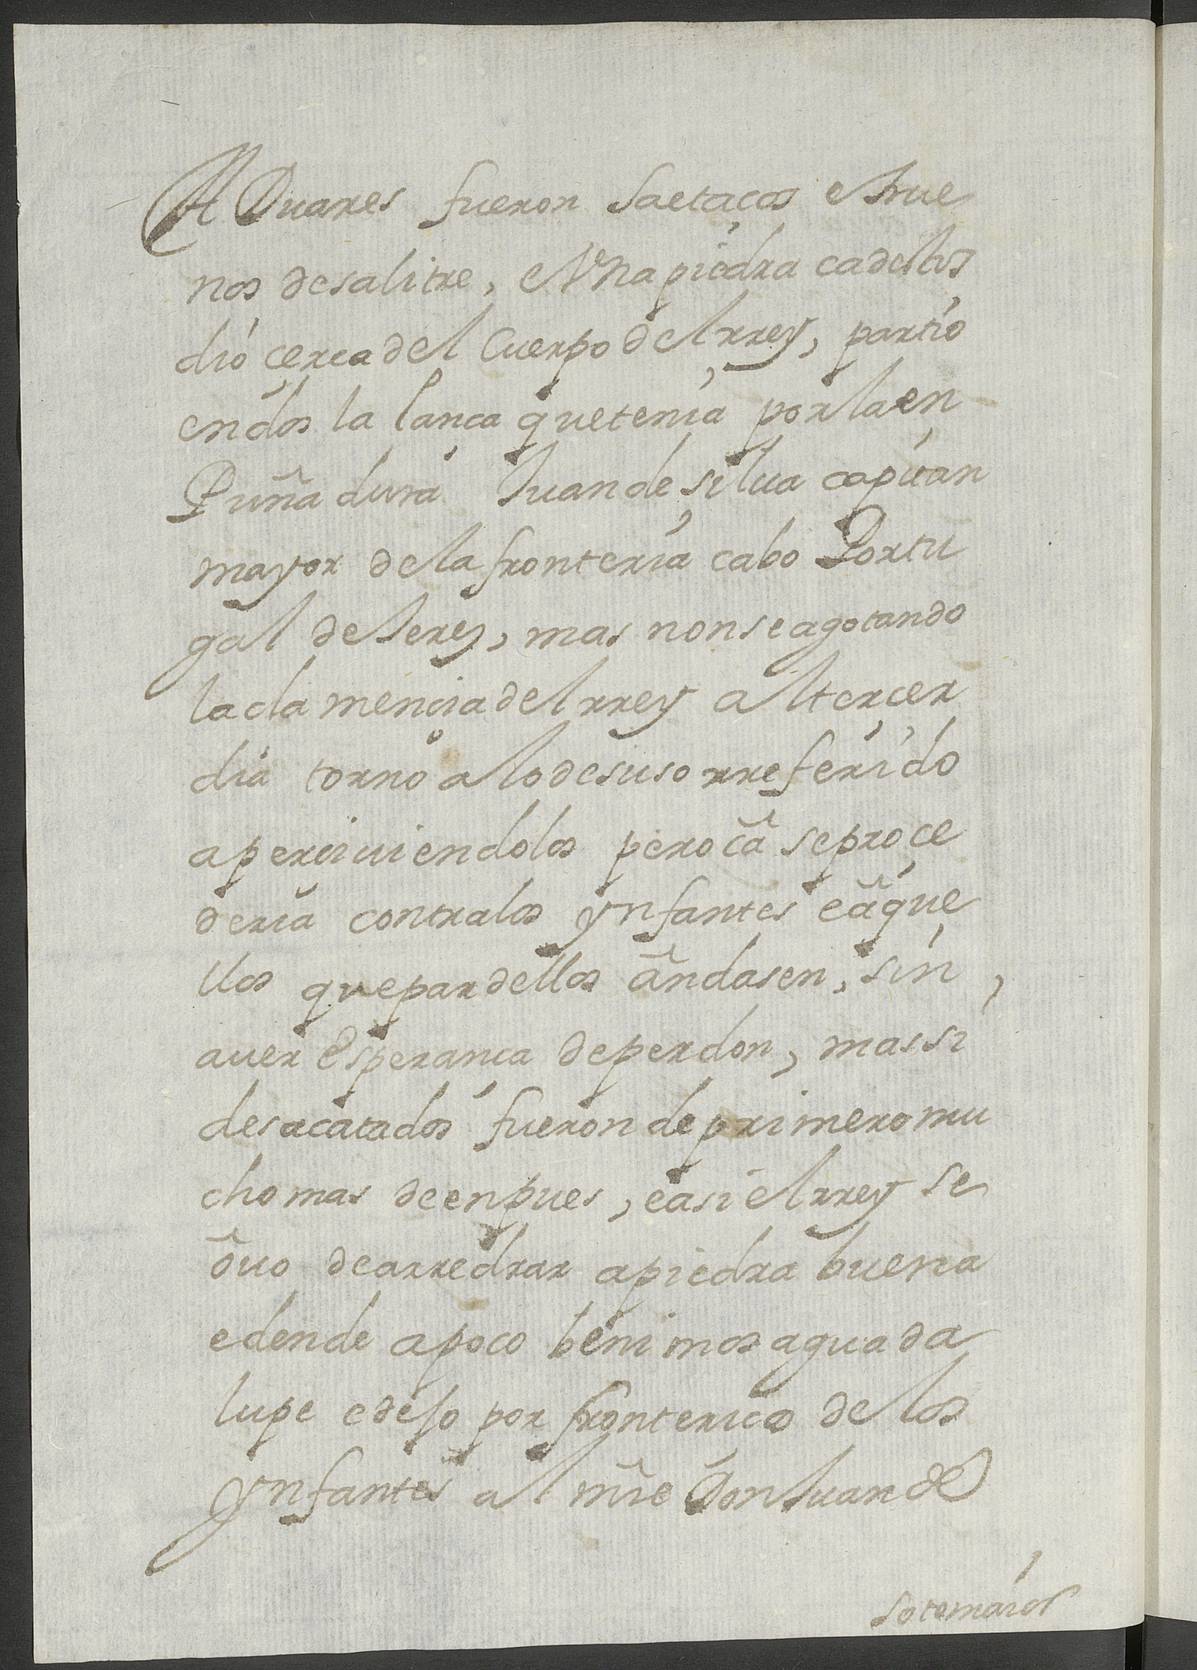 A Duares fueron saetaços e true
nos de salitre, e Vna piedra ca delos
dio cerca del Cuerpo del rrey, partio
en dos la lança que tenia por la en
Puña dura Juan de silua capitan
mayor de la fronteria cabo Portu
gal de Jerez, mas nonse agotando
la clamencia del rrey al tercer
dia torno a lo de suso rreferido
aperciuiendolos pero cã se proce
deria contra los ynfantes e ãque
llos que par dellos ãndasen, sin,
auer Esperança de perdon, mas si
desacatados fueron de primero mu
cho mas deenpues, e asi el rrey se
õuo de arredrar a piedra buena
e dende a poco benimos a guada
lupe e dejo por fronterico de los
Ynfantes al mr̃e Don Juan de
sotomaior